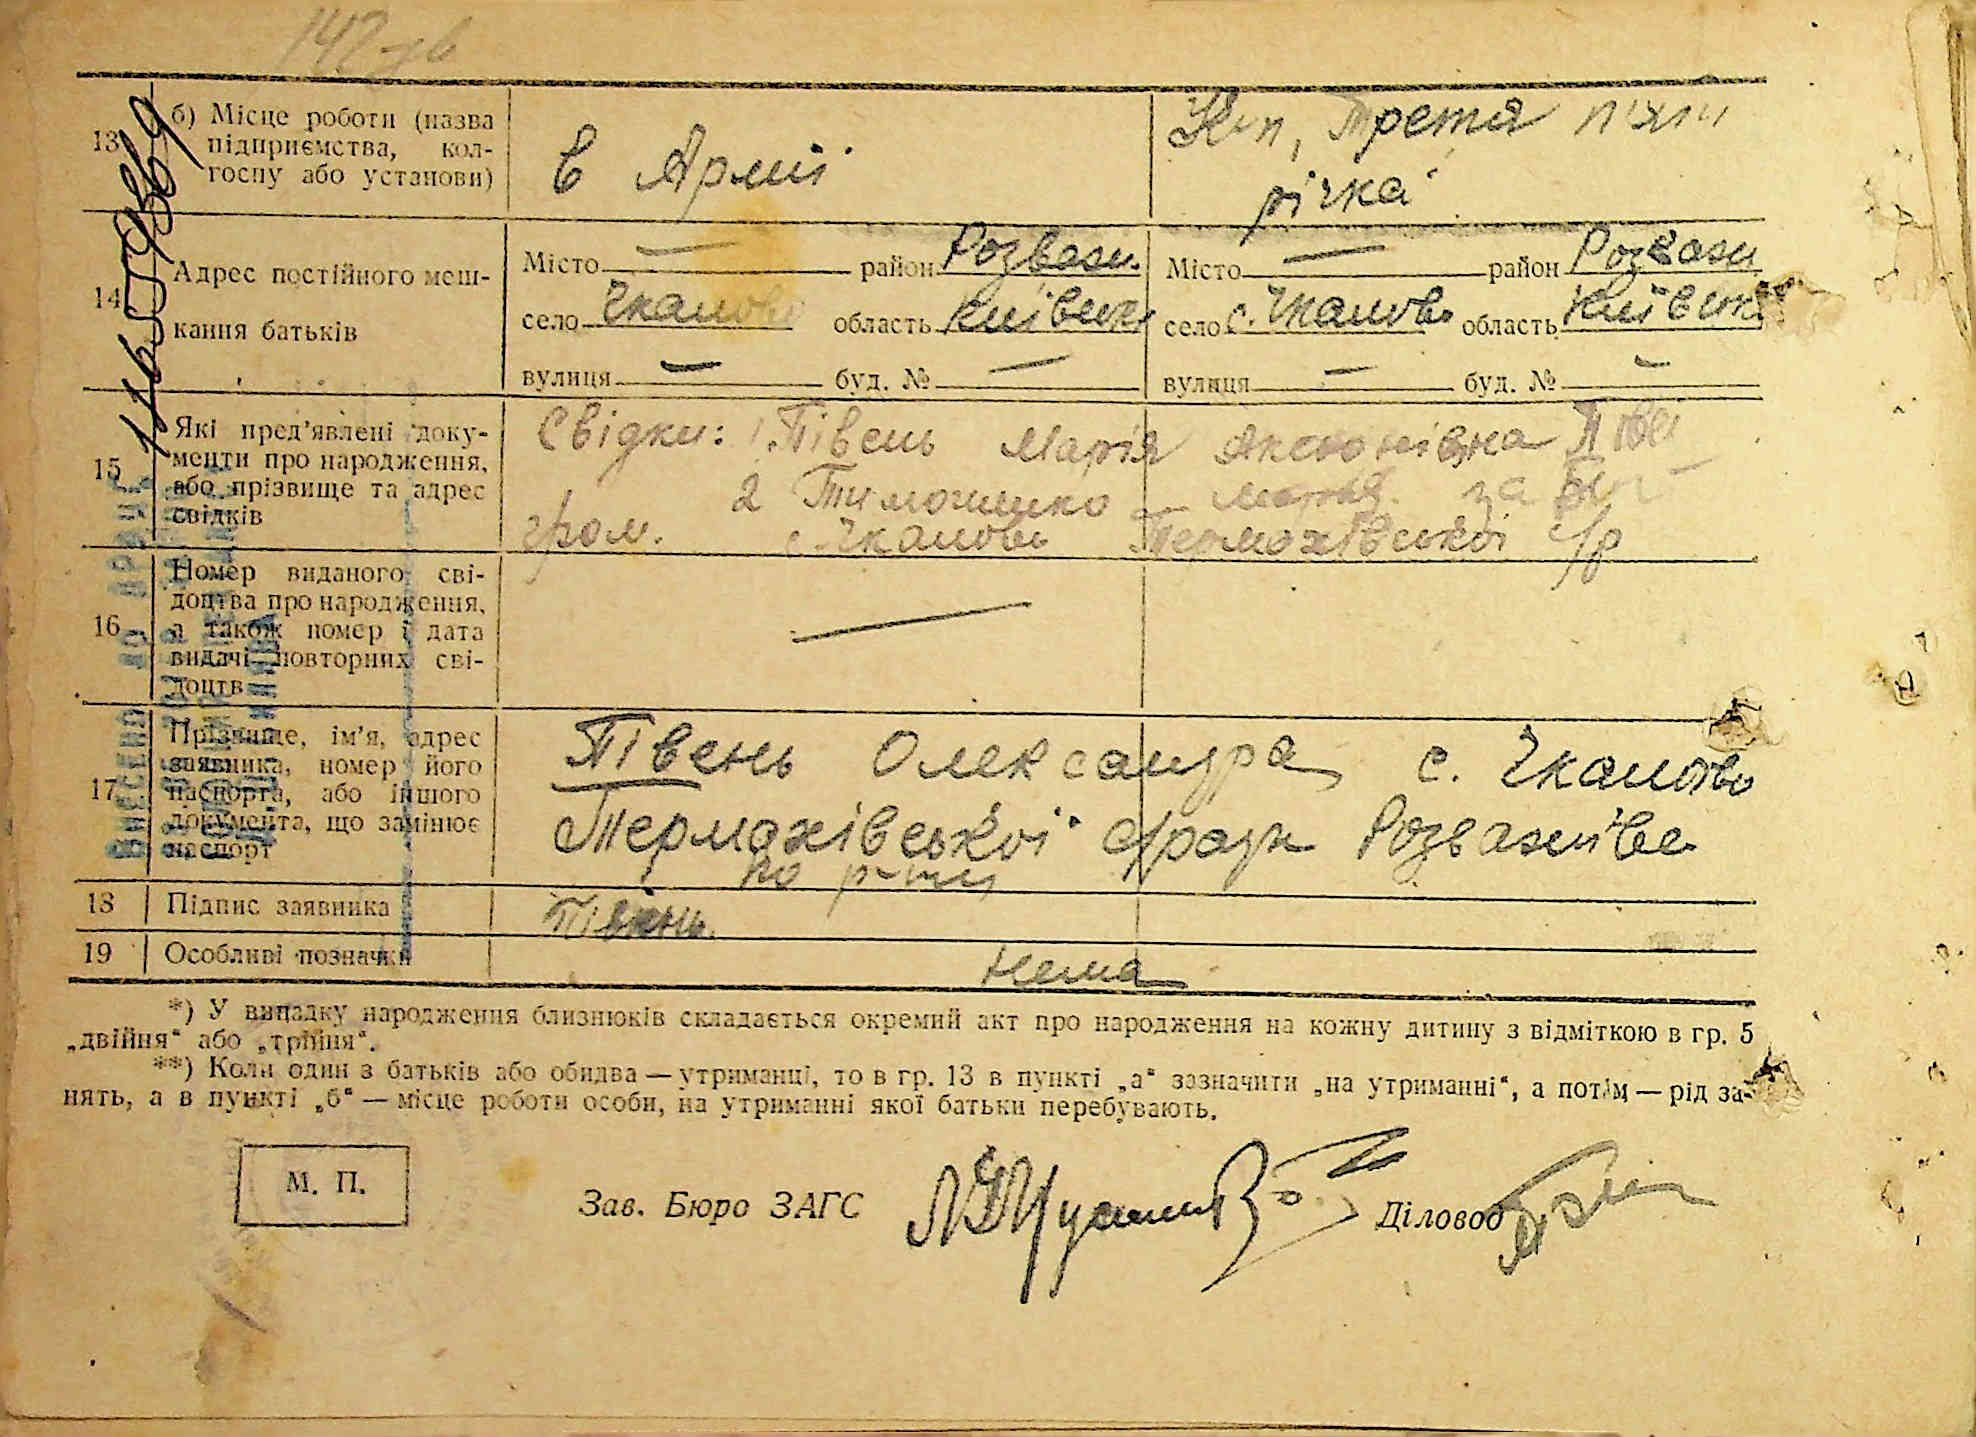 142 зв
13 б) Місце роботи (назва підприємства, колгоспу або установи)
в Армії
Кол, Третя п'яти
річка
14 Адрес постійного мешкання батьків
Місто — район Розваж.
село Чкалово область Київськ
вулиця — буд. № —
Місто — район Розваж
село с. Чкалово область Київськ
вулиця — буд. № —
15 Які пред'явлені документи про народження, або прізвище та адрес свідків
Свідки: 1. Півень Марія Аксонівна
2 Тимошенко за
гром. с. Чкалово Термахівської с/р
16 Номер виданого свідоцтва про народження, а також номер і дата видачі повторних свідоцтв
—
17 Прізвище, ім'я, адрес заявника, номер його паспорта, або іншого документа, що замінює паспорт
Півень Олександра с. Чкалово
Термахівської с/ради Розважівс
ко
18 Підпис заявника
Півень.
19 Особливі позначки
нема
*) У випадку народження близнюків складається окремий акт про народження на кожну дитину з відміткою в гр. 5
„двійня“ або „трійня“.
**) Коли один з батьків або обидва — утриманці, то в гр. 13 в пункті „а“ зазначити „на утриманні“, а потім — рід за-
нять, а в пункті „б“ — місце роботи особи, на утриманні якої батьки перебувають.
М. П.
Зав. Бюро ЗАГС
Діловод